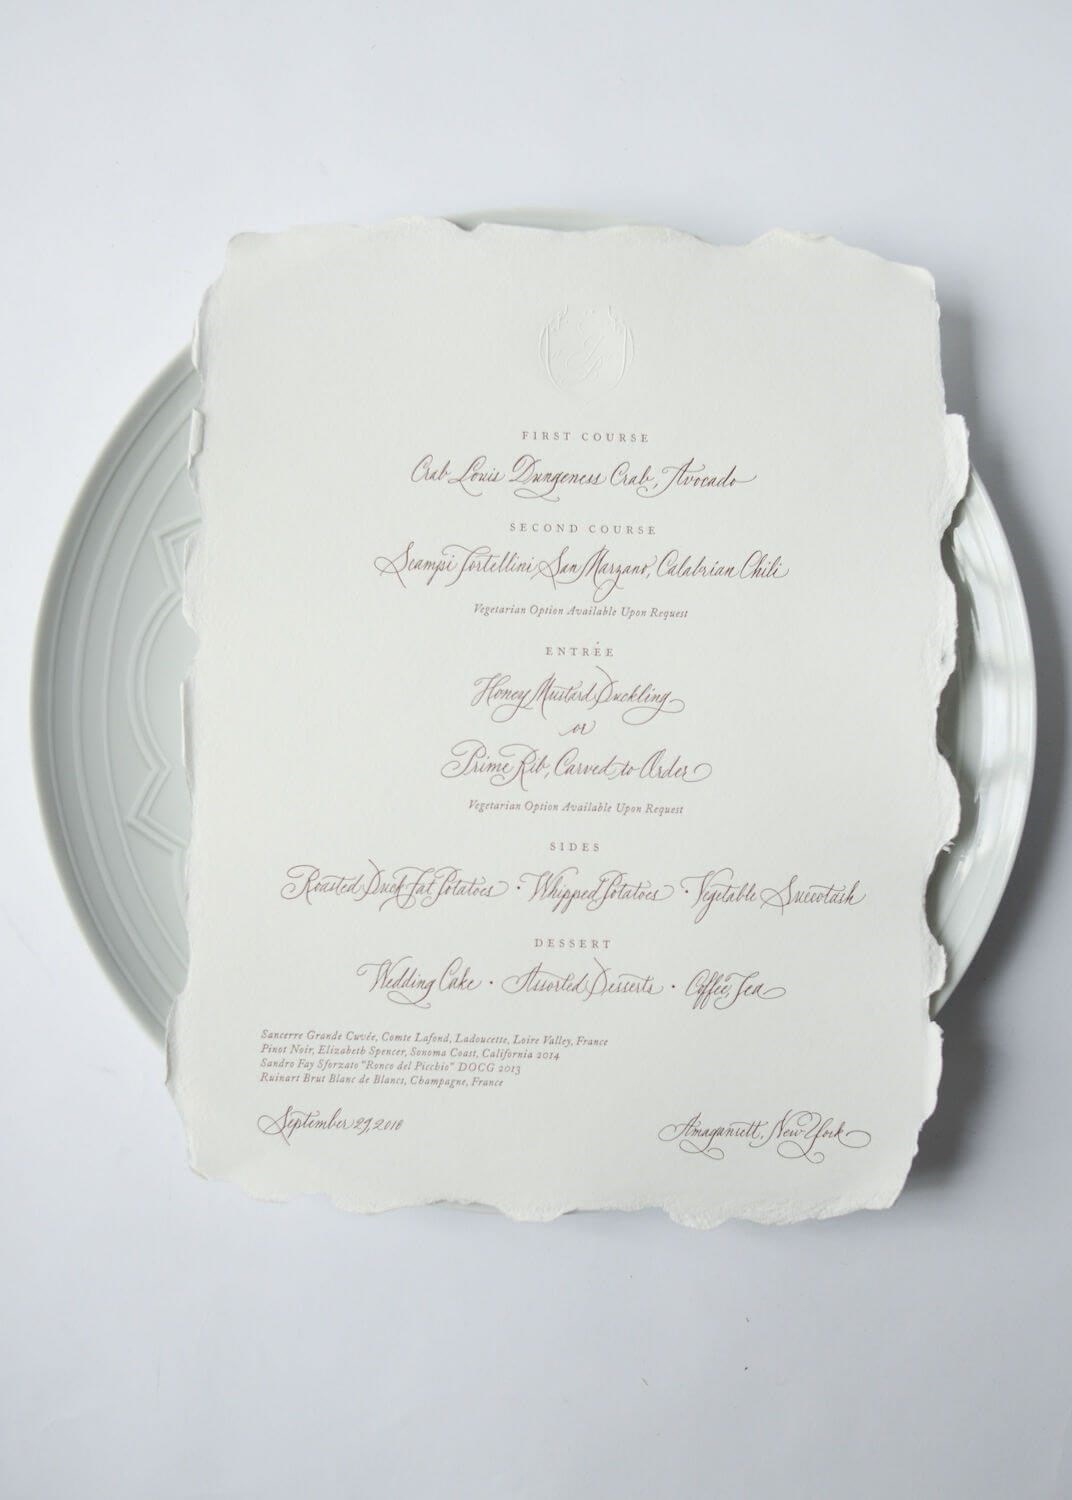 FIRST COURSE
Crab Louis Dungeness Crab, Avocado
SECOND COURSE
Scampi Tortellini, San Marzano, Calabrian Chili
Vegetarian Option Available Upon Request
ENTRÉE
Honey Mustard Duckling
or
Prime Rib, Carved to Order
Vegetarian Option Available Upon Request
SIDES
Roasted Duck Fat Potatoes · Whipped Potatoes · Vegetable Succotash
DESSERT
Wedding Cake · Assorted Desserts · Coffee, Tea
Sancerre Grande Cuvée, Comte Lafond, Ladoucette, Loire Valley, France
Pinot Noir, Elizabeth Spencer, Sonoma Coast, California 2014
Sandro Fay Sforzato "Ronco del Picchio" DOCG 2013
Ruinart Brut Blanc de Blancs, Champagne, France
September 29, 2018
Amagansett, New York